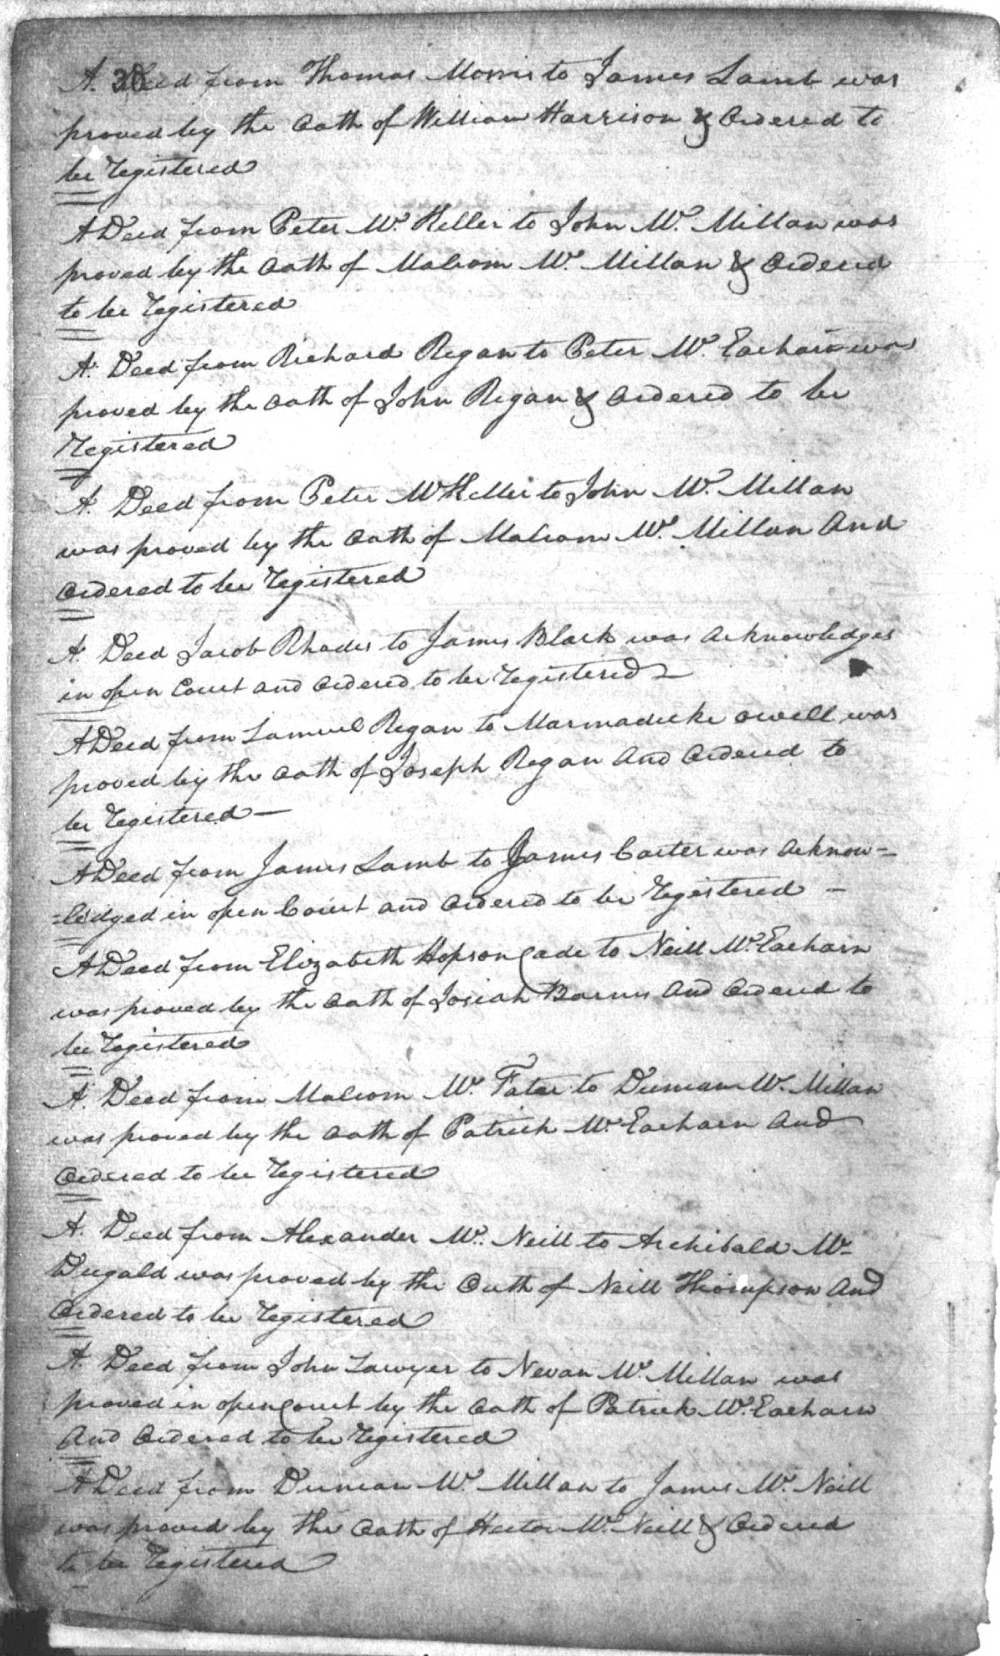 A. Deed from Thomas Morris to James Lamb was
proved by the Oath of William Harrison & Ordered to
be Registered
A Deed from Peter Mc. Keller to John Mc. Millan was
proved by the Oath of Malcom Mc. Millan & Ordered
to be Registered
A. Deed from Richard Regan to Peter Mc. Eacharn was
proved by the Oath of John Regan & Ordered to be
Registered
A. Deed from Peter McKeller to John Mc. Millan
was proved by the Oath of Malcom Mc. Millan And
Ordered to be Registered
A. Deed Jacob Rhodes to James Black was Acknowledges
in open Court and Ordered to be Registered
A Deed from Samuel Regan to Marmaducke Owell was
proved by the Oath of Joseph Regan And Ordered to
be Registered —
A Deed from James Lamb to James Carter was Acknow=
=ledged in open Court and Ordered to be Registered —
A Deed from Elizabeth Hopson Cade to Neill Mc. Eacharn
was proved by the Oath of Josiah Barnes And Ordered to
be Registered
A. Deed from Malcom Mc. Fater to Duncan Mc. Millan
was proved by the Oath of Patrick Mc. Eacharn And
Ordered to be Registered
A. Deed from Alexander Mc. Neill to Archibald Mc
Dugald was proved by the Outh of Neill Thompson And
Ordered to be Registered
A. Deed from John Sawyer to Nevan Mc. Millan was
proved in open Court by the Oath of Patrick Mc. Eacharn
And Ordered to be Registered
A Deed from Duncan Mc. Millan to James Mc. Neill
was proved by the Oath of Hector Mc. Neill & Ordered
to be Registered